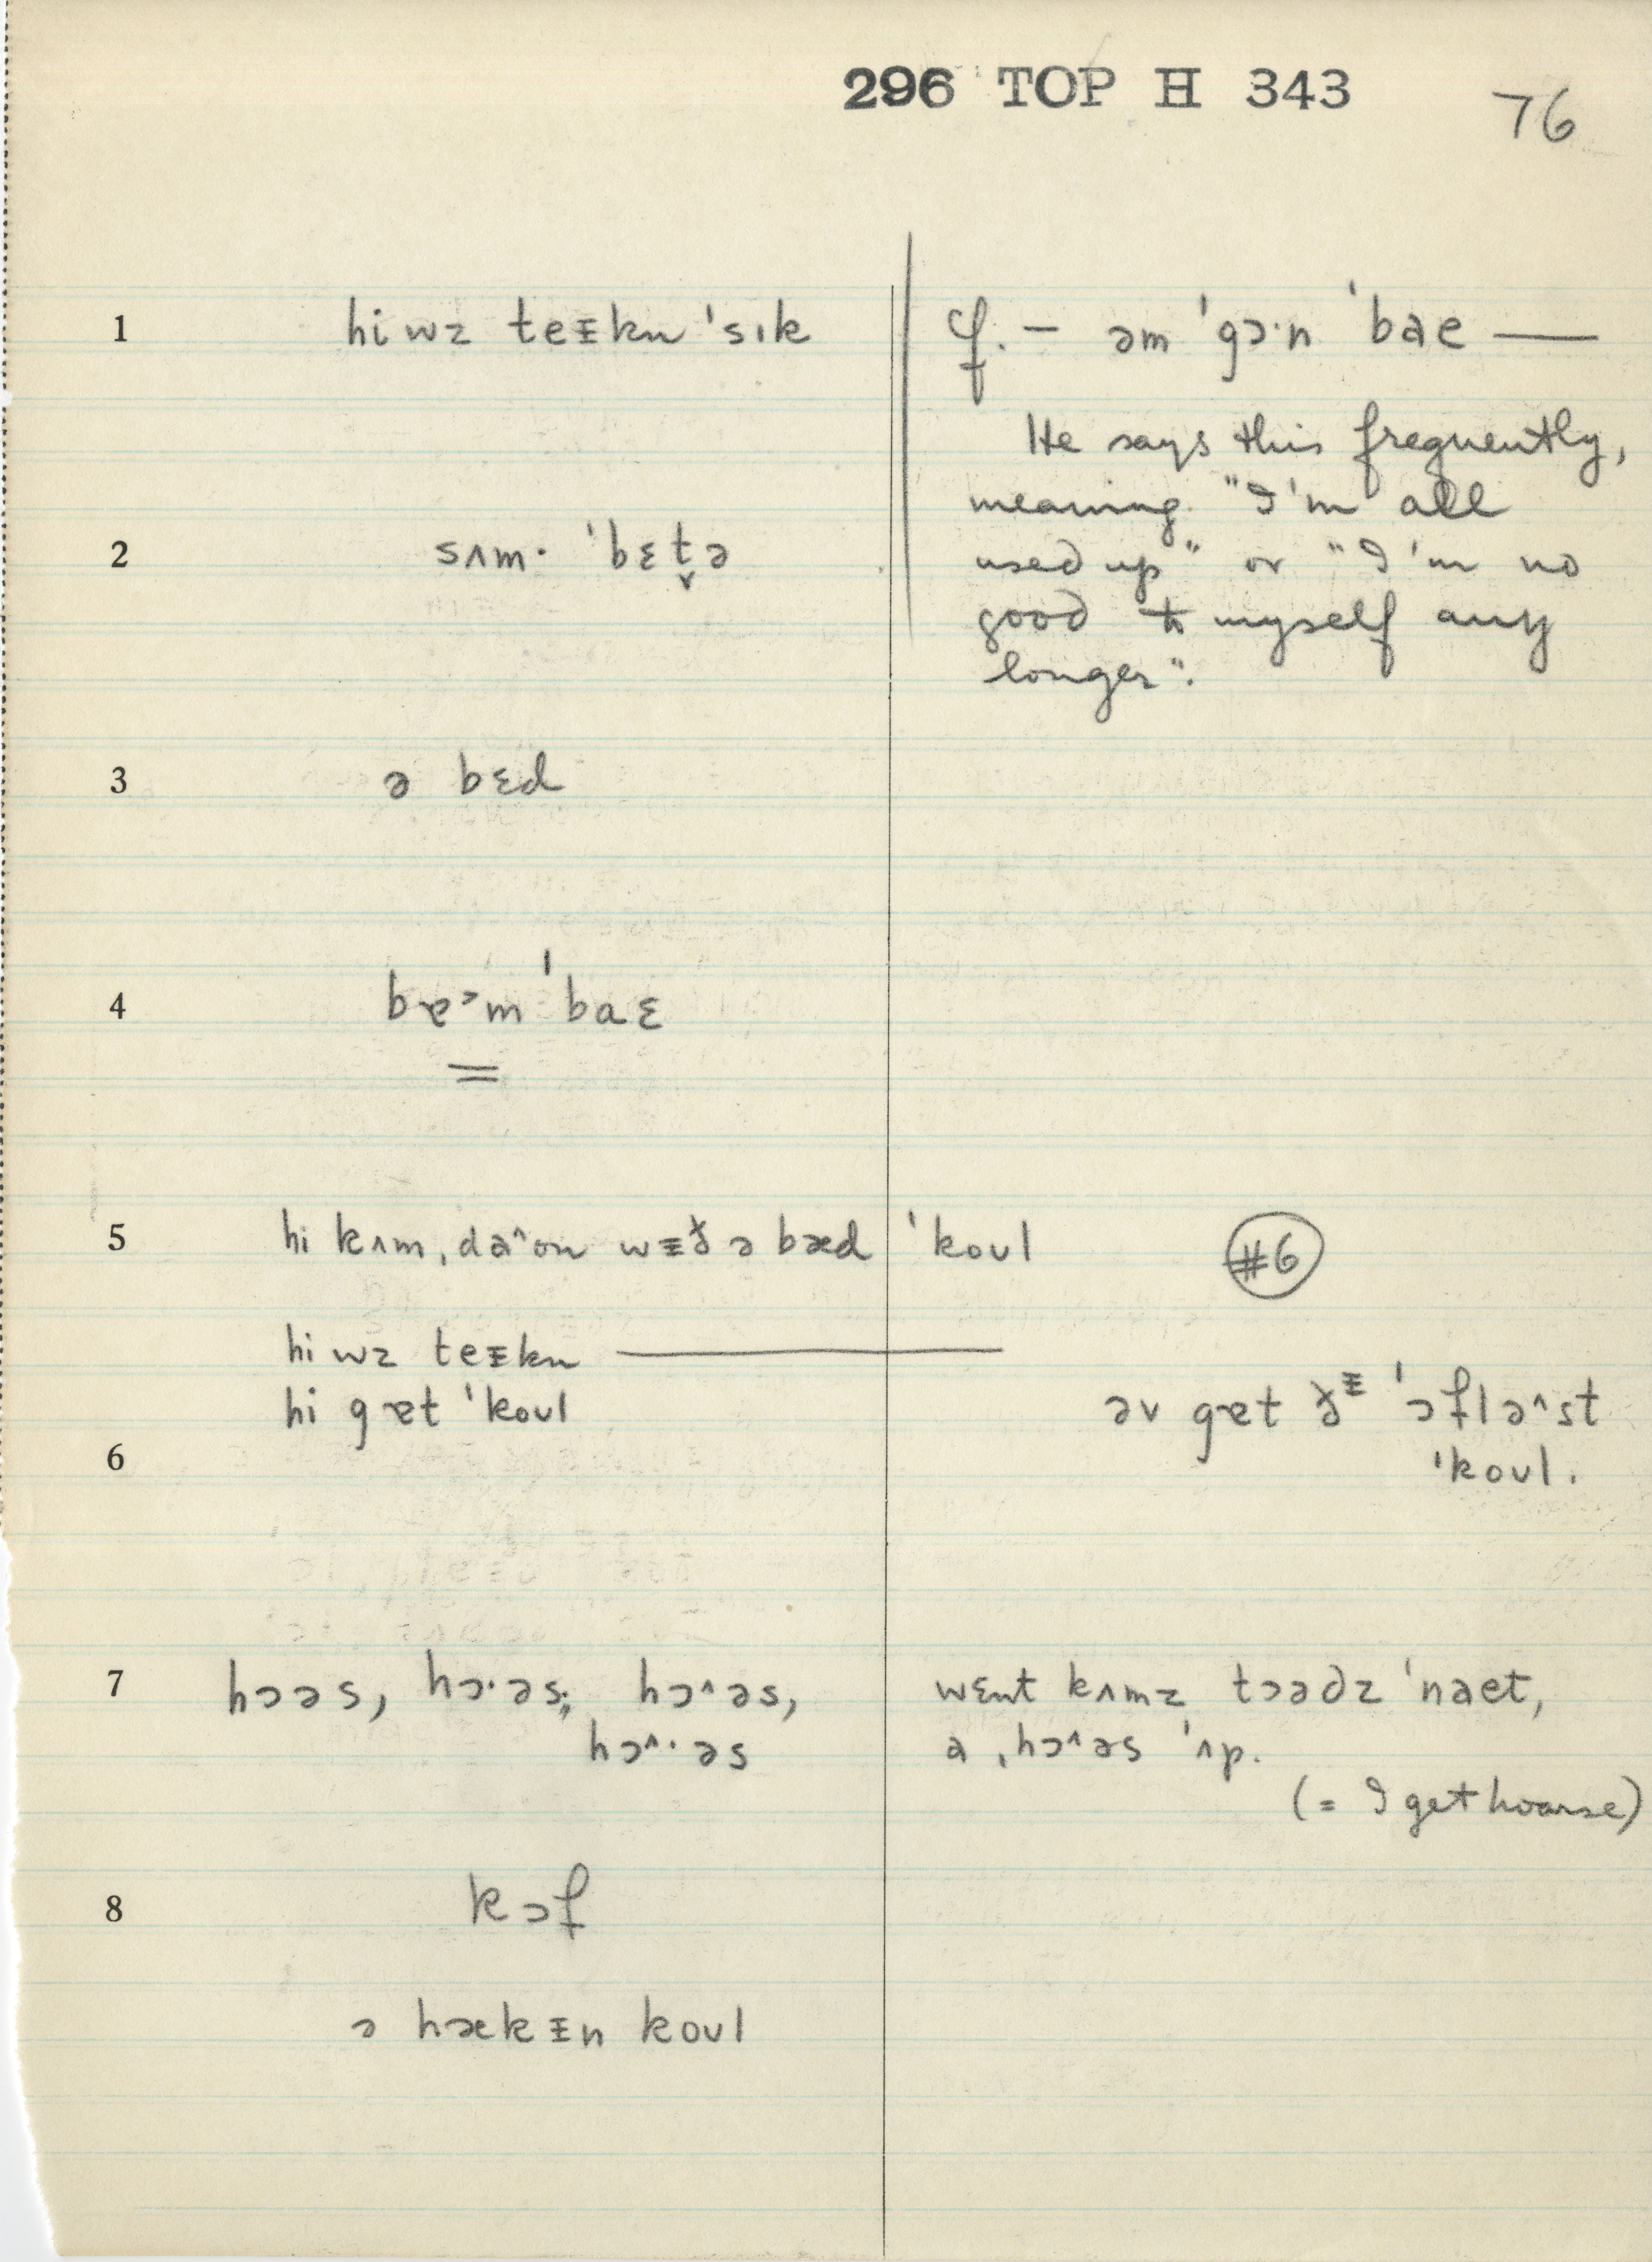 296 TOP H 343 76
1 hi wz teᵻkn ˈsɪk
cf. — əm ˈgɔ·n ˈbae —
He says this frequently,
meaning "I'm all
used up" or "I'm no
good to myself any
longer".
2 sʌm· ˈbɛt̬ə
3 ə bɛd
4 bɐ˃m ˈbaɛ
5 hi kʌm ˌda^ʊn wᵻð ə bæd ˈkoʊl #6
hi wz teᵻkn ———
hi gɐt ˈkoʊl
6
əv gɐt ðᵻ ˈɔflə^st
ˈkoʊl.
7 hɔəs, hɔ·əs; hɔ^əs,
hɔ^·əs
wɛnt kʌmz tɔədz ˈnaet,
a ˌhɔ^əs ˈʌp.
(= I get hoarse)
8 kɔf
ə hækᵻn koʊl